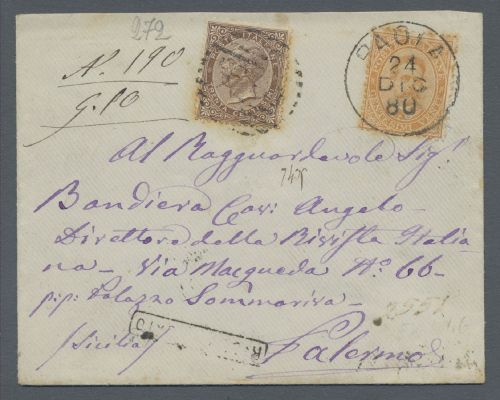 272
N. 190
g. 10
PAOLA
24
DIC
80
Al Ragguardevole Sigr
Bandiera Cav: Angelo
Direttore della Rivista Italia
na - Via Macqueda No: 66 -
p:p: Palazzo Sommariva -
(Sicilia)
Palermo